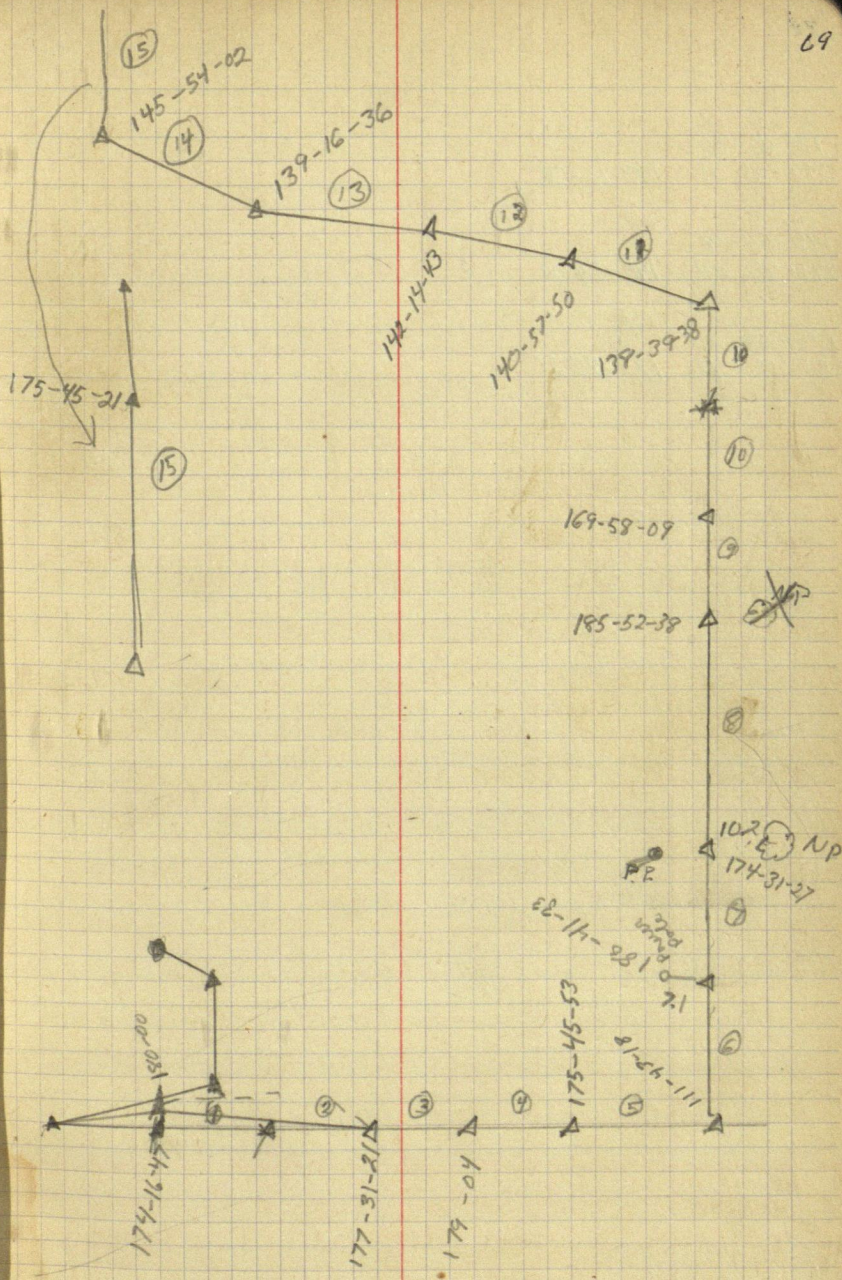 69
15
145-54-02
14
139-16-36
13
12
11
142-14-43
140-57-50
139-39-38
10
175-45-21
10
15
169-58-09
9
185-52-38
8
102
NP
174-31-27
P.P.
7
188-41-33
power
pole
7.1
6
111-49-18
175-45-53
180-00
2
3
4
5
174-16-45
177-31-21
179-04